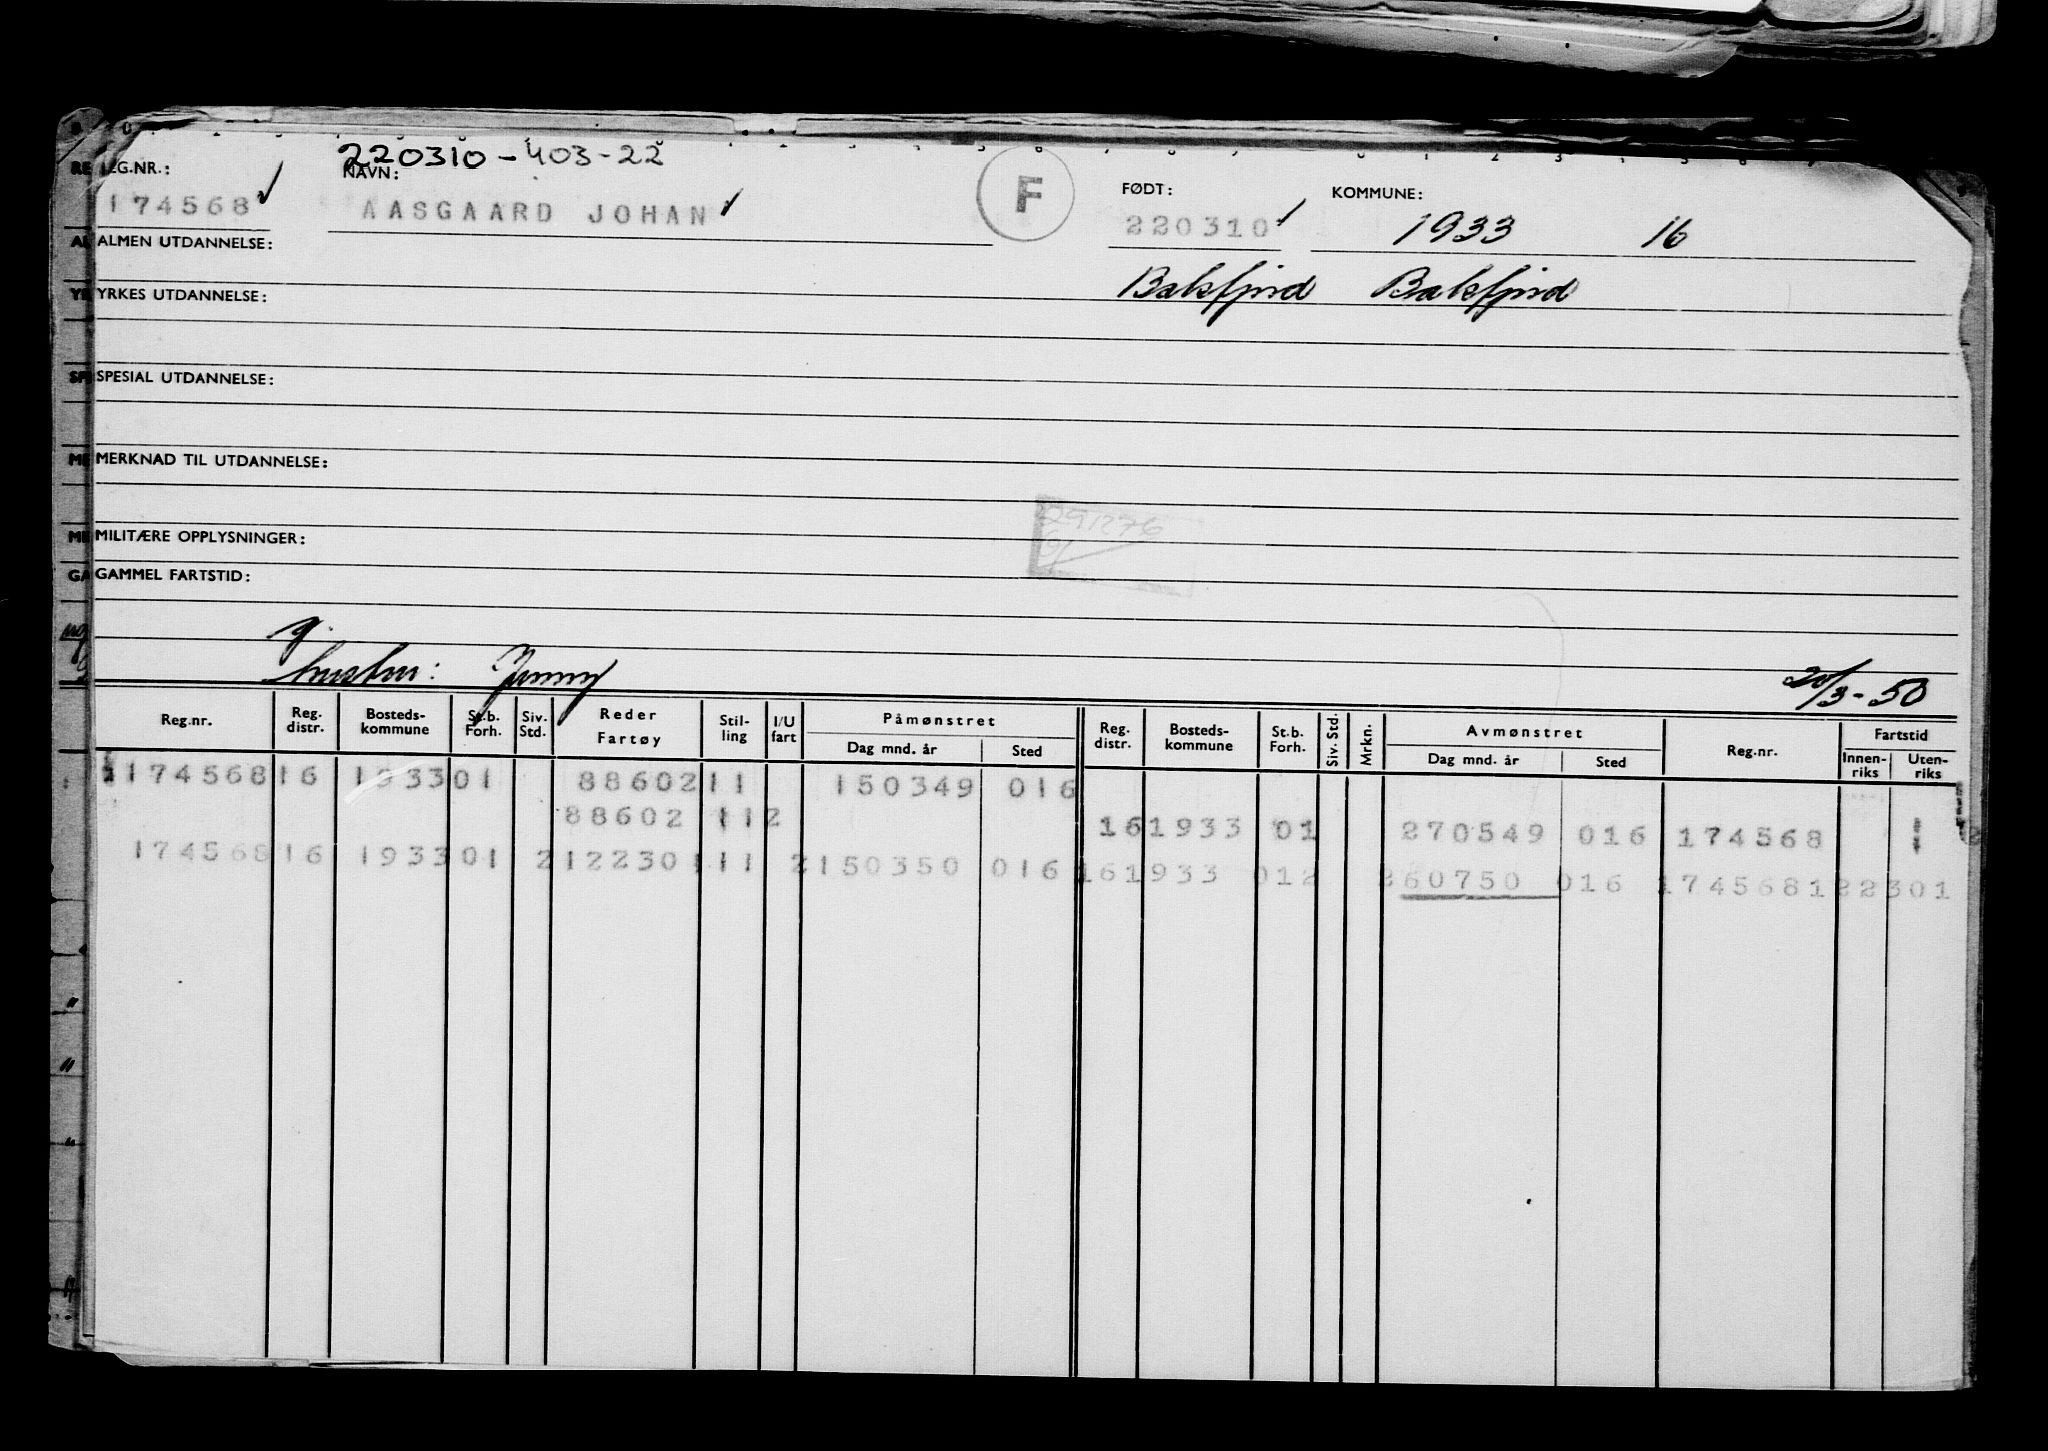 220310-403-22
REG.NR.: NAVN: F FØDT: KOMMUNE:
174568 ✓ AASGAARD JOHAN ✓ 220310 ✓ 1933 16
ALMEN UTDANNELSE:
Balsfjord Balsfjord
YRKES UTDANNELSE:
SPESIAL UTDANNELSE:
MERKNAD TIL UTDANNELSE:
291276
MILITÆRE OPPLYSNINGER:
GAMMEL FARTSTID:
g.
hustru: Jenny 20/3-50
Reg.nr. Reg. distr. Bosteds-kommune St.b. Forh. Siv. Std. Reder Fartøy Stil-ling I/U fart Påmønstret Dag mnd. år Sted Reg. distr. Bosteds-kommune St.b. Forh. Siv. Std. Mrkn. Avmønstret Dag mnd. år Sted Reg.nr. Fartstid Innen-riks Uten-riks
174568 16 1933 01 88602 11 150349 016
88602 112 16 1933 01 270549 016 174568
174568 16 1933 01 2 122301 11 2 150350 016 16 1933 012 260750 016 174568 122301